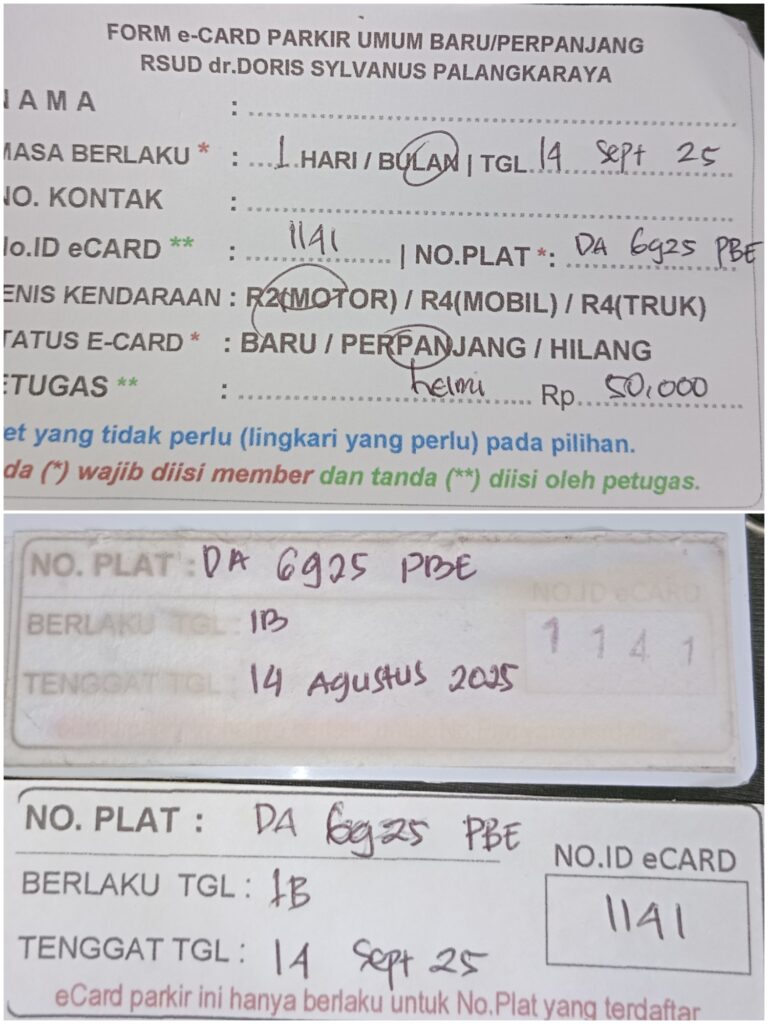 FORM e-CARD PARKIR UMUM BARU/PERPANJANG
RSUD dr.DORIS SYLVANUS PALANGKARAYA
NAMA :
MASA BERLAKU * : 1 HARI / BULAN | TGL 14 Sept 25
NO. KONTAK :
No.ID eCARD ** : 1141 | NO.PLAT *: DA 6925 PBE
JENIS KENDARAAN : R2(MOTOR) / R4(MOBIL) / R4(TRUK)
STATUS E-CARD * : BARU / PERPANJANG / HILANG
PETUGAS ** : helmi Rp. 50.000
et yang tidak perlu (lingkari yang perlu) pada pilihan.
da (*) wajib diisi member dan tanda (**) diisi oleh petugas.
NO. PLAT : DA 6925 PBE
NO.ID eCARD
BERLAKU TGL : 1B
1141
TENGGAT TGL : 14 Agustus 2025
NO. PLAT : DA 6925 PBE
NO.ID eCARD
BERLAKU TGL : 1B
1141
TENGGAT TGL : 14 Sept 25
eCard parkir ini hanya berlaku untuk No.Plat yang terdaftar